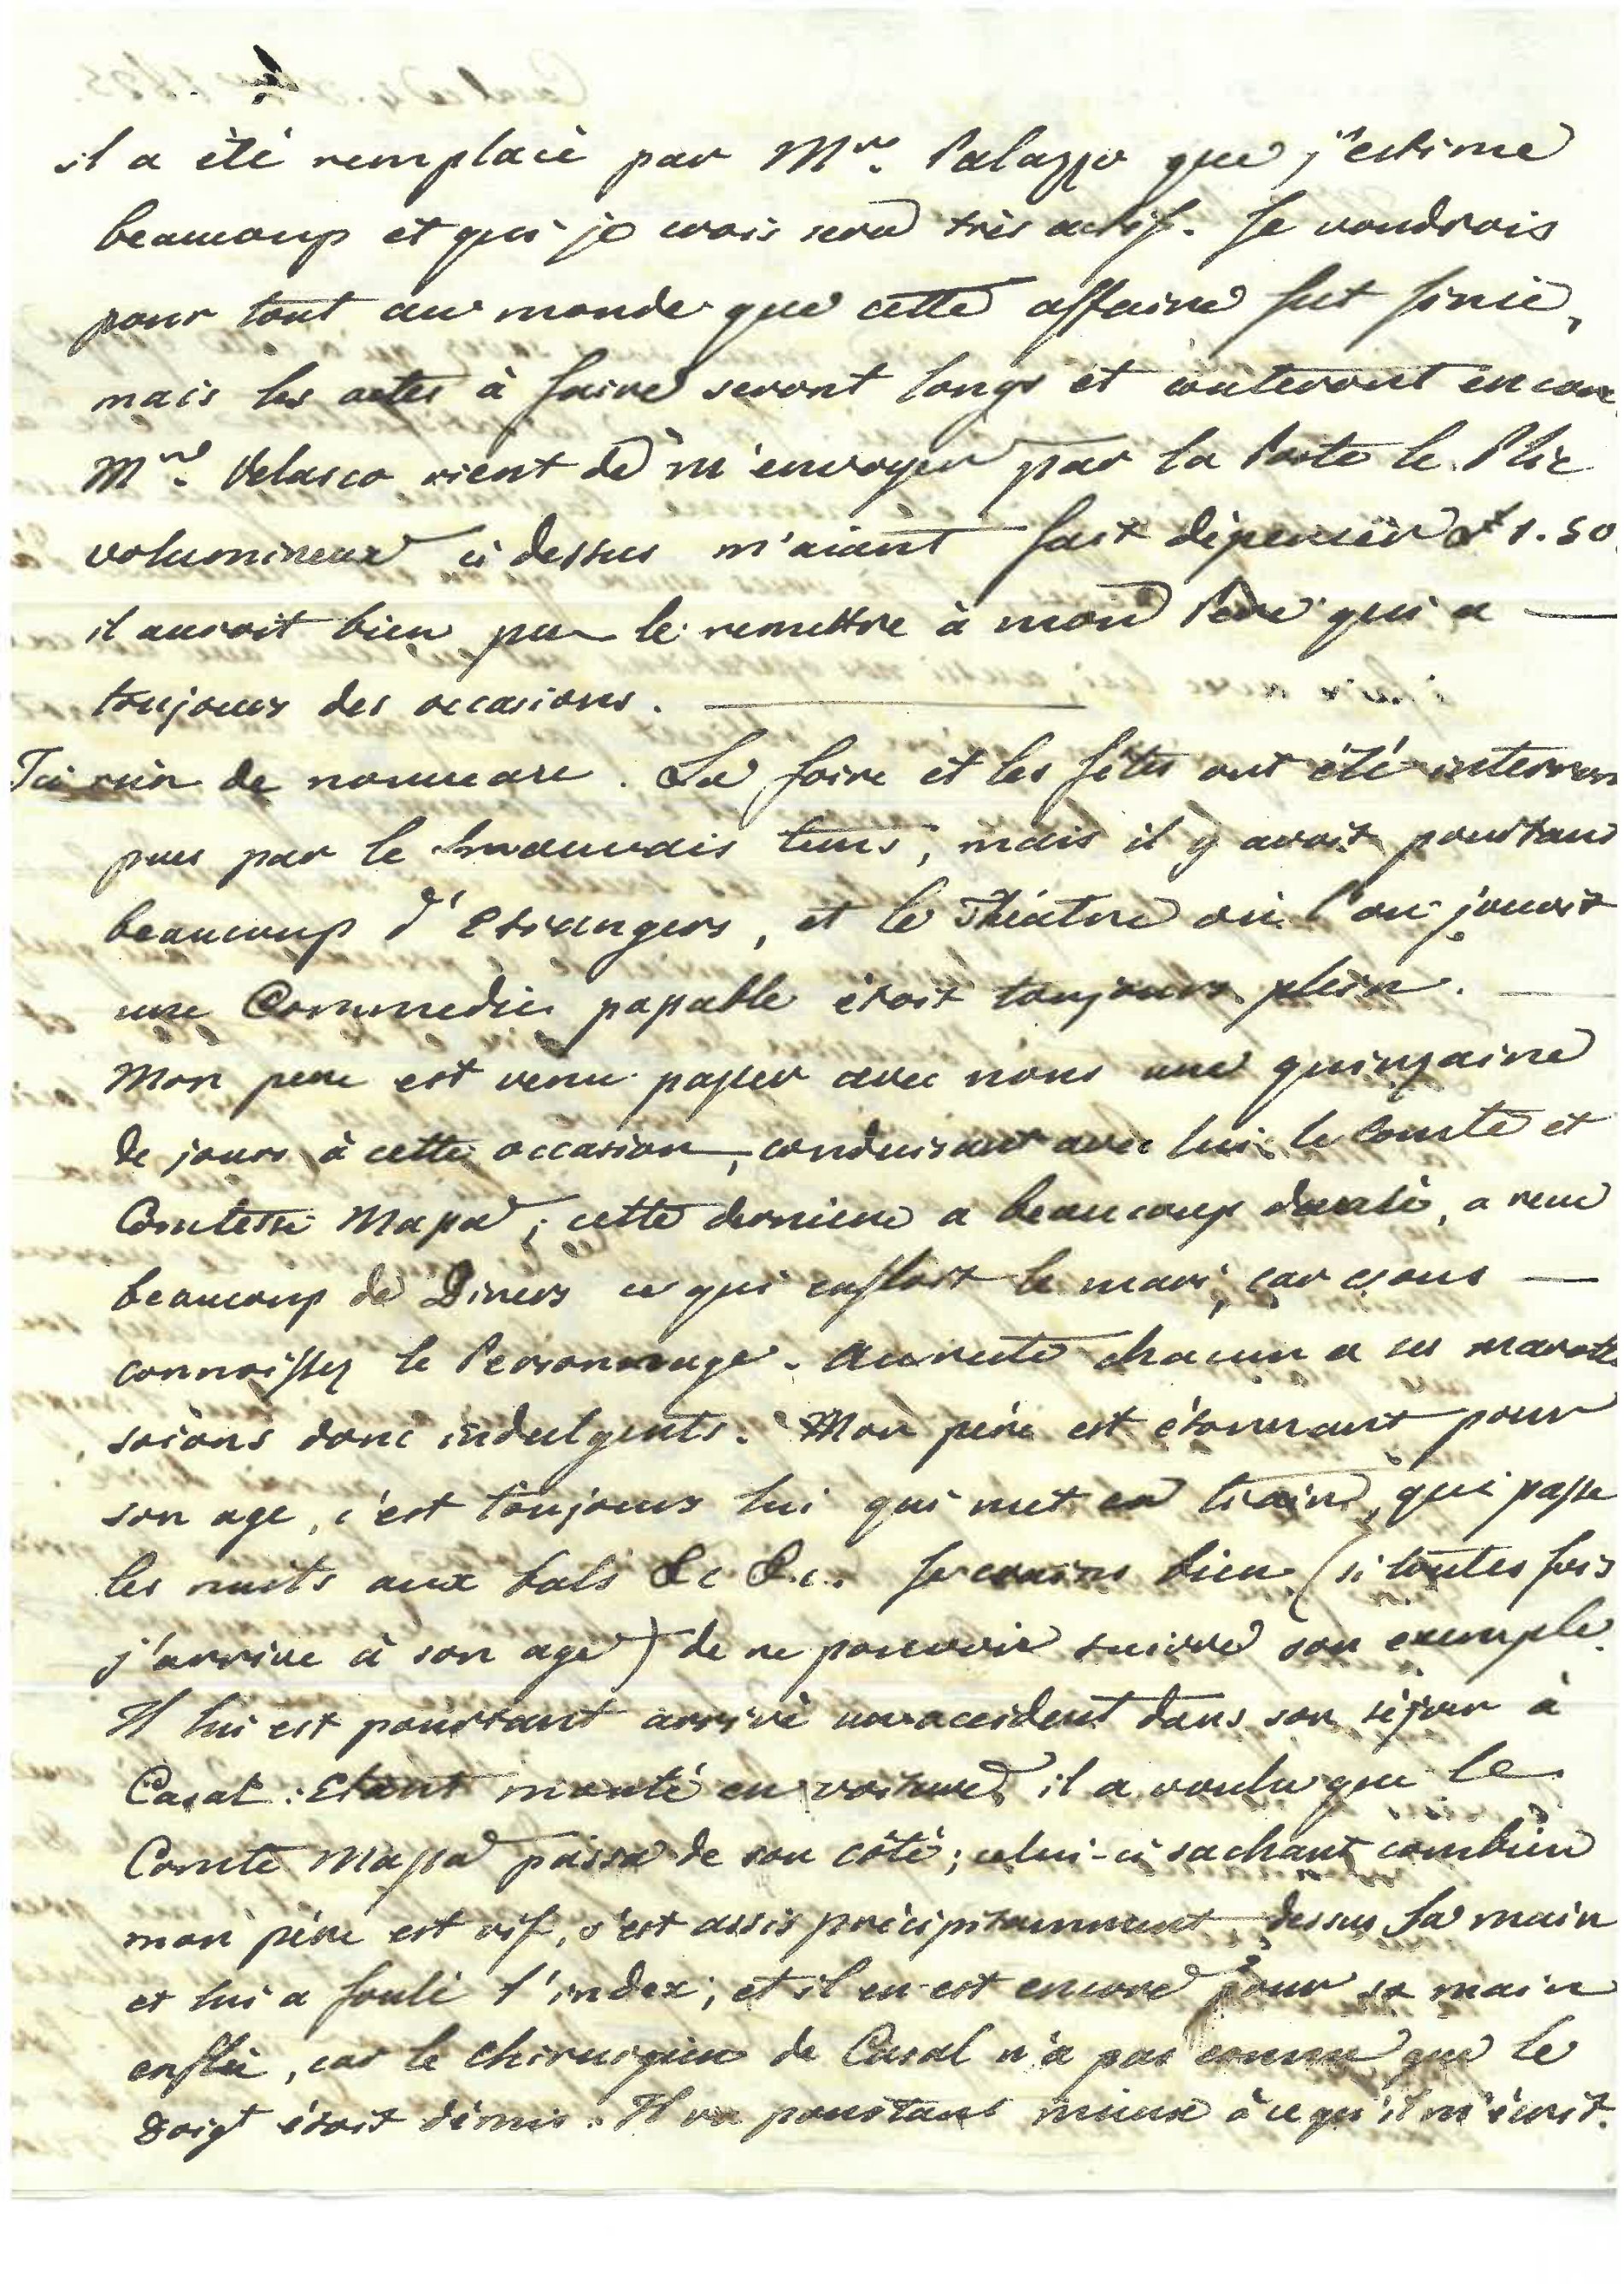 il a èté remplacè par Mr. Palazzo que j'estime
beaucoup et qui je crois sera très actif. Je voudrois
pour tout au monde que cette affaire fut finie,
mais les actes à faire seront longs et couteront encore
Mr. Velasco vient de m'envoyer par la Poste le Plic
volumineux ci dessus m'aiant fait dépenser 1.50
il auroit bien pu le remettre à mon Père qui a
toujours des occasions.
Ici rien de nouveau. La foire et les fêtes ont été interrom
pues par le mauvais tems, mais il y avoit pourtant
beaucoup d'Etrangers, et le Théatre où l'on jouoit
une Commedie passable étoit toujours plein.
Mon pere est venu passer avec nous une quinzaine
de jours à cette occasion, conduisant avec lui le Comte et
Comtesse Massa; cette derniere a beaucoup dansé, a reçu
beaucoup de Diners ce qui enfloit le mari, car vous
connoissez le Personnage. Au reste chacun a ses marottes
soions donc indulgents. Mon père est étonnant pour
son age, c'est toujours lui qui met en train, qui passe
les nuits aux bals &c &c. Je crains bien (si toutes fois
j'arrive à son age) de ne pouvoir suivre son exemple.
Il lui est pourtant arrivé un accident dans son séjour à
Casal: Etant monté en voiture, il a voulu que le
Comte Massa passa de son côté; celui-ci sachant combien
mon père est vif, s'est assis précipitamment dessus sa main
et lui a foulé l'index; et il en est encore pour sa main
enflée, car le chirurgien de Casal n'a pas connu que le
Doigt étoit démis. Il va pourtant mieux à ce qu'il m'écrit.